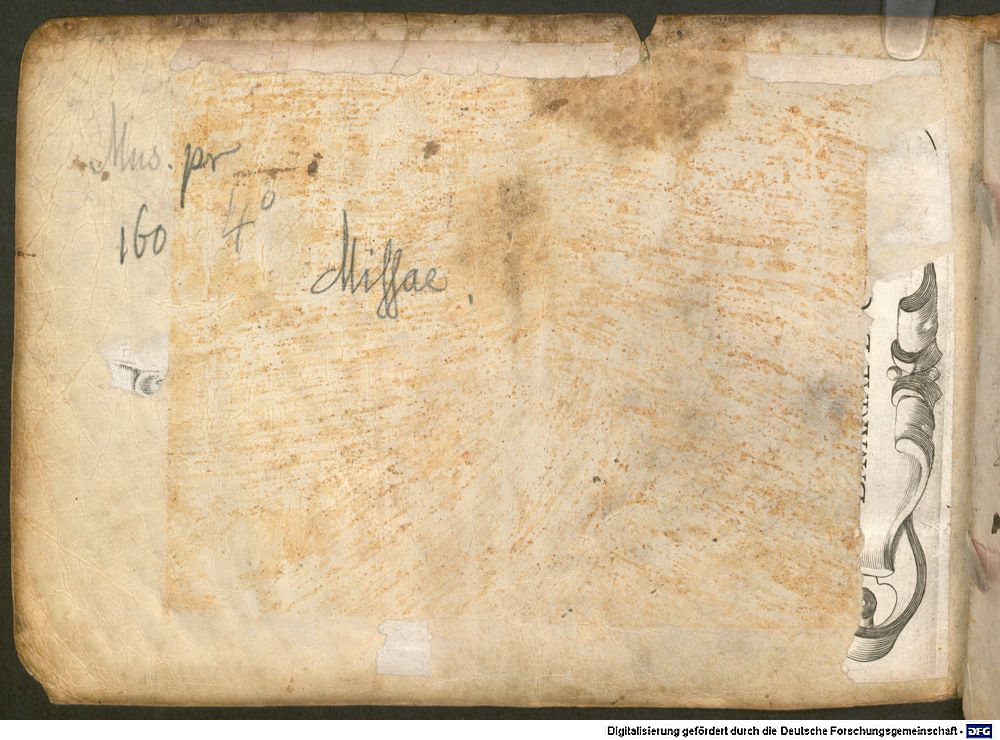 Mus. pr
4°
160
Missae.
Digitalisierung gefördert durch die Deutsche Forschungsgemeinschaft - DFG